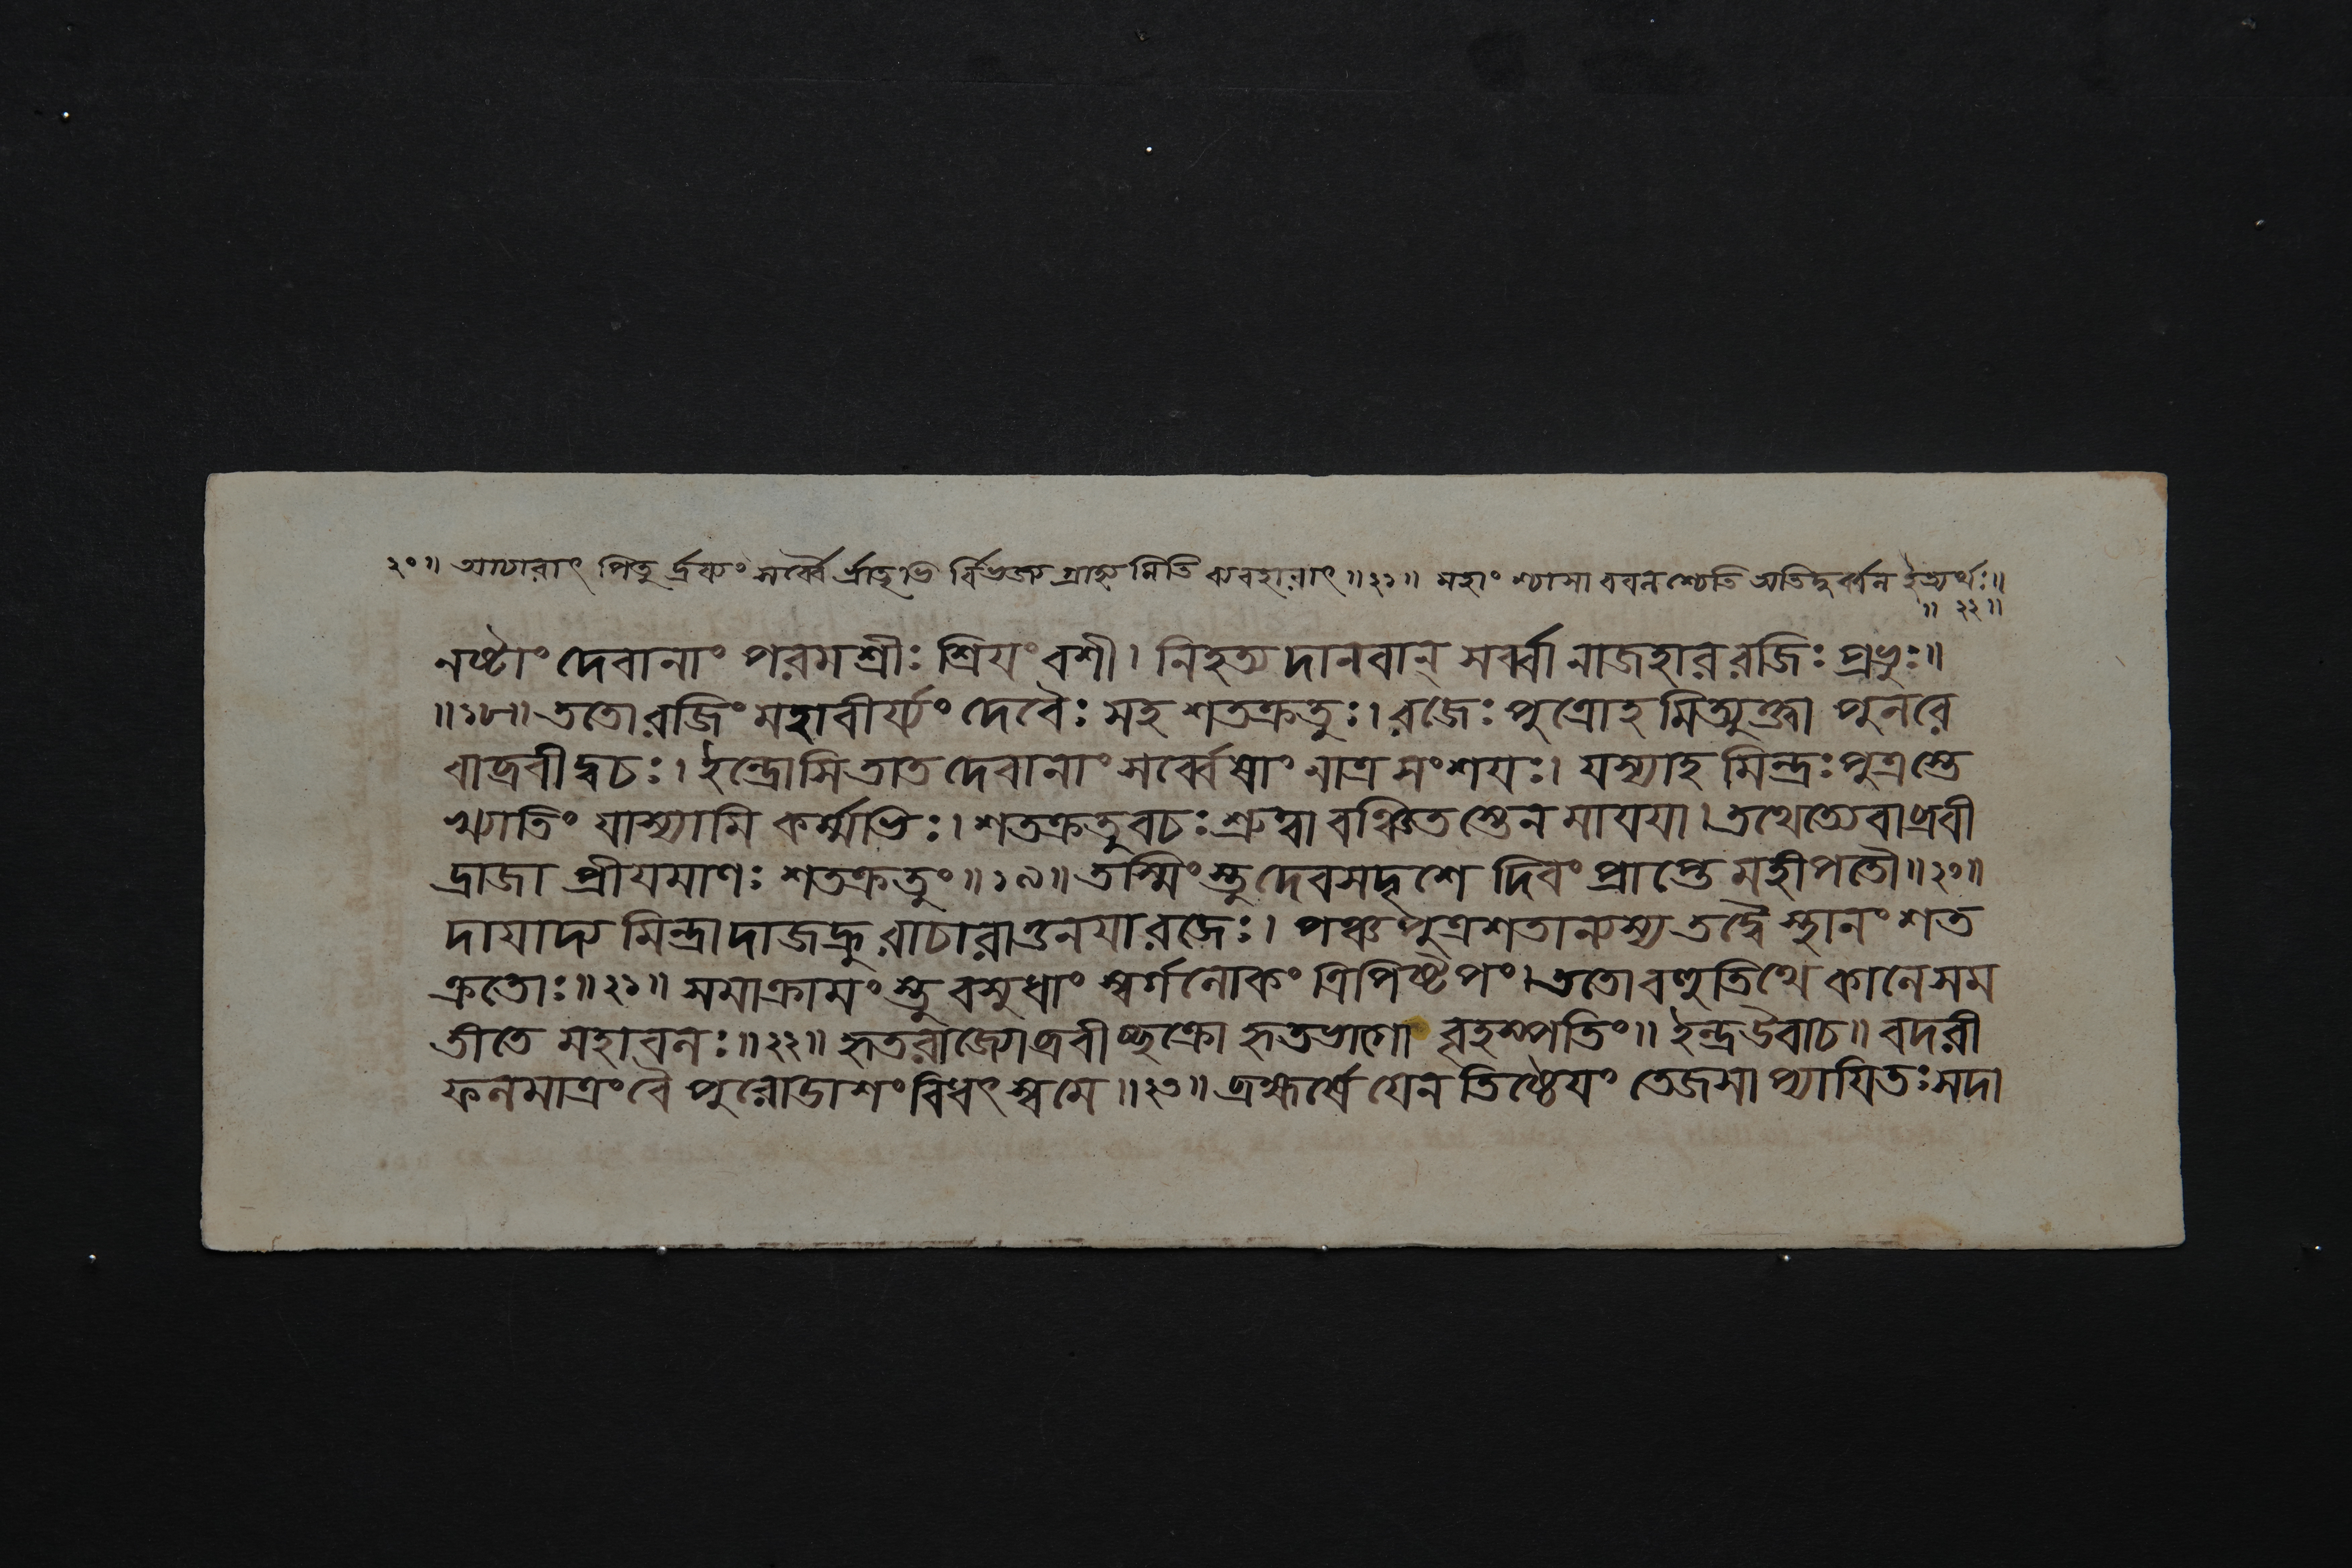 ২০॥ আচারাৎ পিতুর্দ্রব্যং সর্ব্বৈর্ভ্রাতৃভির্বিভজ্য গ্রাহ্যমিতি ব্যবহারাৎ॥২১॥ অতিদুর্ব্বল ইত্যর্থঃ॥
॥২২॥
নষ্টাং দেবানাং পরমশ্রীঃ শ্রিযং বশী। নিহত্য দানবান্ সর্ব্বানাজহার রজিঃ প্রভুঃ॥
॥১৮॥ ততো রজিং মহাবীর্য্যং দেবৈঃ সহ শতক্রতুঃ। রজেঃ পুত্রোহমিত্যুক্ত্বা পুনরে
বাব্রবীদ্বচঃ। ইন্দ্রোসি তাত দেবানাং সর্ব্বেষাং নাত্র সংশযঃ। যস্যাহমিন্দ্রঃ পুত্রস্তে
খ্যাতিং যাস্যামি কর্ম্মভিঃ। শতক্রতুবচঃ শ্রুত্বা বঞ্চিতস্তেন মাযযা। তথেত্যেবাব্রবী
দ্রাজা প্রীযমাণঃ শতক্রতুং॥১৯॥ তস্মিংস্তু দেবসদৃশে দিবং প্রাপ্তে মহীপতৌ॥২০॥
দাযাদ্যমিন্দ্রাদাজহ্রুরাচারাত্তনযা রজেঃ। পঞ্চপুত্রশতান্যস্য তদ্বৈ স্থানং শত
ক্রতোঃ॥২১॥ সমাক্রামংস্তু বসুধাং স্বর্গলোকং ত্রিপিষ্টপং। ততো বহুতিথে কালে সম
তীতে মহাবলঃ॥২২॥ হৃতরাজ্যোব্রবীচ্ছক্রো হৃতভাগো বৃহস্পতিং॥ ইন্দ্র উবাচ॥ বদরী
ফলমাত্রং বৈ পুরোডাশং বিধৎস্ব মে॥২৩॥ ব্রহ্মর্ষে যেন তিষ্ঠেযং তেজসাপ্যাযিতঃ সদা